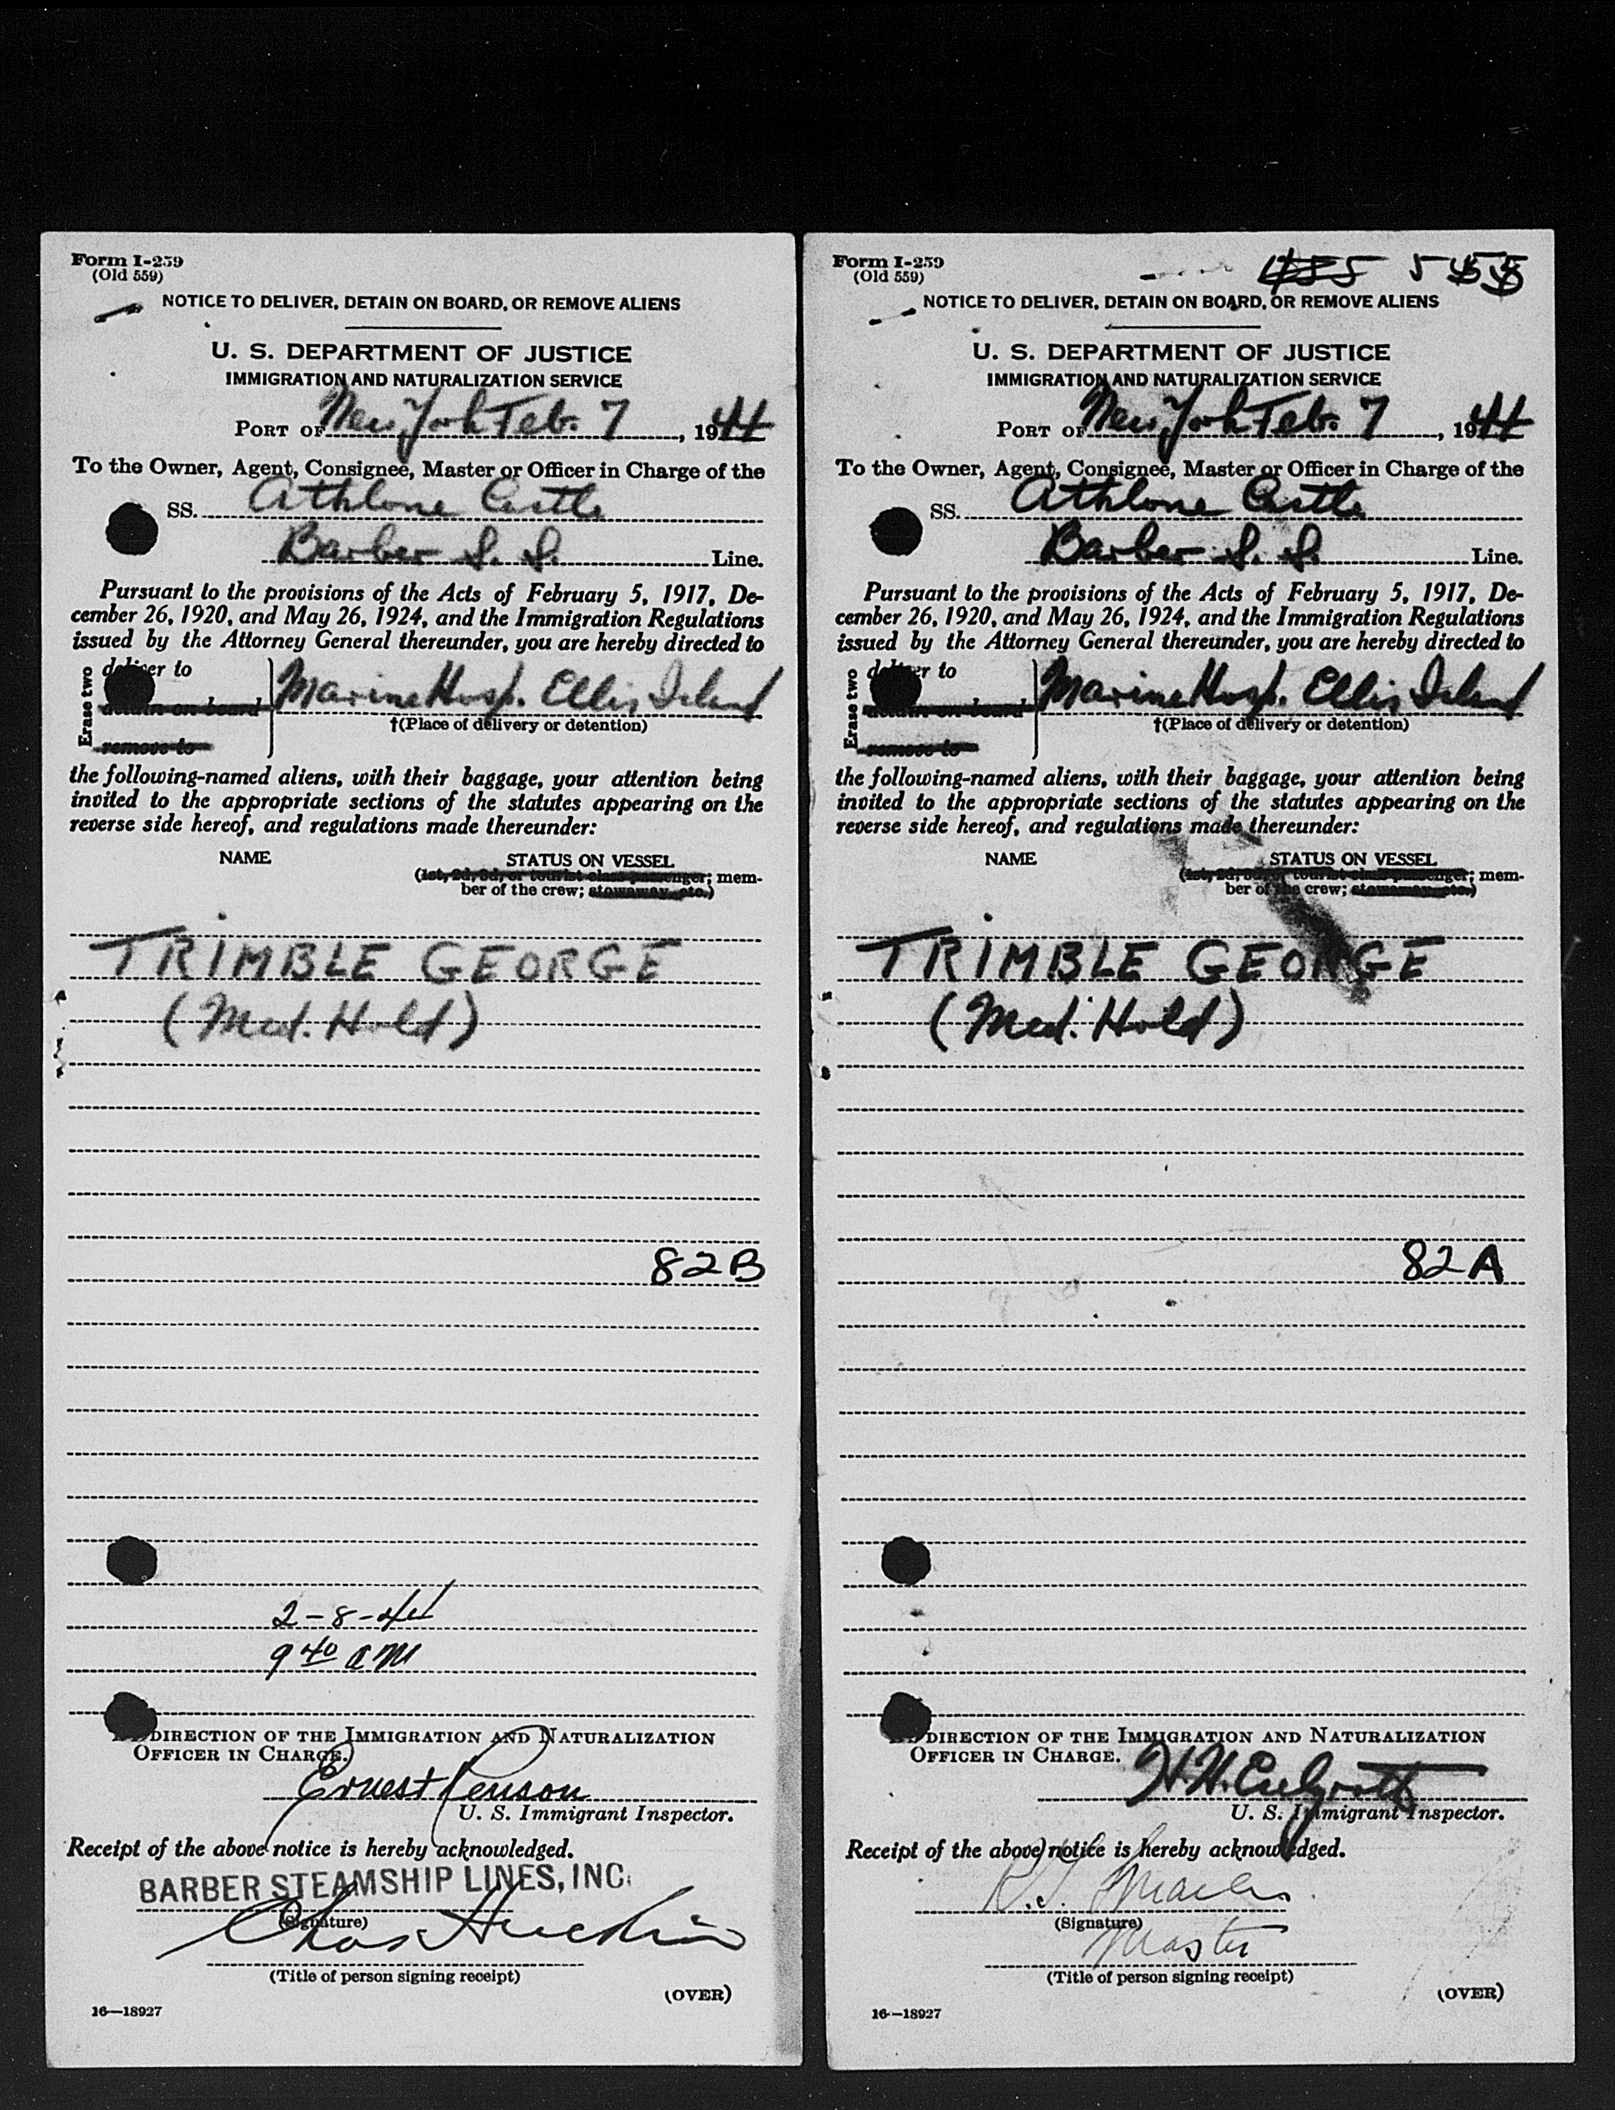 Form I-259
(Old 559)
NOTICE TO DELIVER, DETAIN ON BOARD, OR REMOVE ALIENS
U. S. DEPARTMENT OF JUSTICE
IMMIGRATION AND NATURALIZATION SERVICE
PORT OF New York Feb. 7, 1944
To the Owner, Agent, Consignee, Master or Officer in Charge of the
SS. Athlone Castle
Barber S. S. Line.
Pursuant to the provisions of the Acts of February 5, 1917, De-
cember 26, 1920, and May 26, 1924, and the Immigration Regulations
issued by the Attorney General thereunder, you are hereby directed to
Erase two
deliver to
detain on board
remove to
Marine Hosp. Ellis Island
†(Place of delivery or detention)
the following-named aliens, with their baggage, your attention being
invited to the appropriate sections of the statutes appearing on the
reverse side hereof, and regulations made thereunder:
NAME STATUS ON VESSEL
(1st, 2d, 3d, or tourist class passenger; mem-
ber of the crew; stowaway, etc.)
TRIMBLE GEORGE
(Med. Hold)
82B
2-8-44
9 40 AM
DIRECTION OF THE IMMIGRATION AND NATURALIZATION
OFFICER IN CHARGE.
Ernest Penson
U. S. Immigrant Inspector.
Receipt of the above notice is hereby acknowledged.
BARBER STEAMSHIP LINES, INC.
(Signature)
Chas
(Title of person signing receipt)
(OVER)
16—18927
Form I-259
(Old 559)
455 5455
NOTICE TO DELIVER, DETAIN ON BOARD, OR REMOVE ALIENS
U. S. DEPARTMENT OF JUSTICE
IMMIGRATION AND NATURALIZATION SERVICE
PORT OF New York Feb. 7, 1944
To the Owner, Agent, Consignee, Master or Officer in Charge of the
SS. Athlone Castle
Barber S. S. Line.
Pursuant to the provisions of the Acts of February 5, 1917, De-
cember 26, 1920, and May 26, 1924, and the Immigration Regulations
issued by the Attorney General thereunder, you are hereby directed to
Erase two
deliver to
detain on board
remove to
Marine Hosp. Ellis Island
†(Place of delivery or detention)
the following-named aliens, with their baggage, your attention being
invited to the appropriate sections of the statutes appearing on the
reverse side hereof, and regulations made thereunder:
NAME STATUS ON VESSEL
(1st, 2d, 3d, or tourist class passenger; mem-
ber of the crew; stowaway, etc.)
TRIMBLE GEORGE
(Med. Hold)
82A
DIRECTION OF THE IMMIGRATION AND NATURALIZATION
OFFICER IN CHARGE.
H. H.
U. S. Immigrant Inspector.
Receipt of the above notice is hereby acknowledged.
(Signature)
Master
(Title of person signing receipt)
(OVER)
16—18927